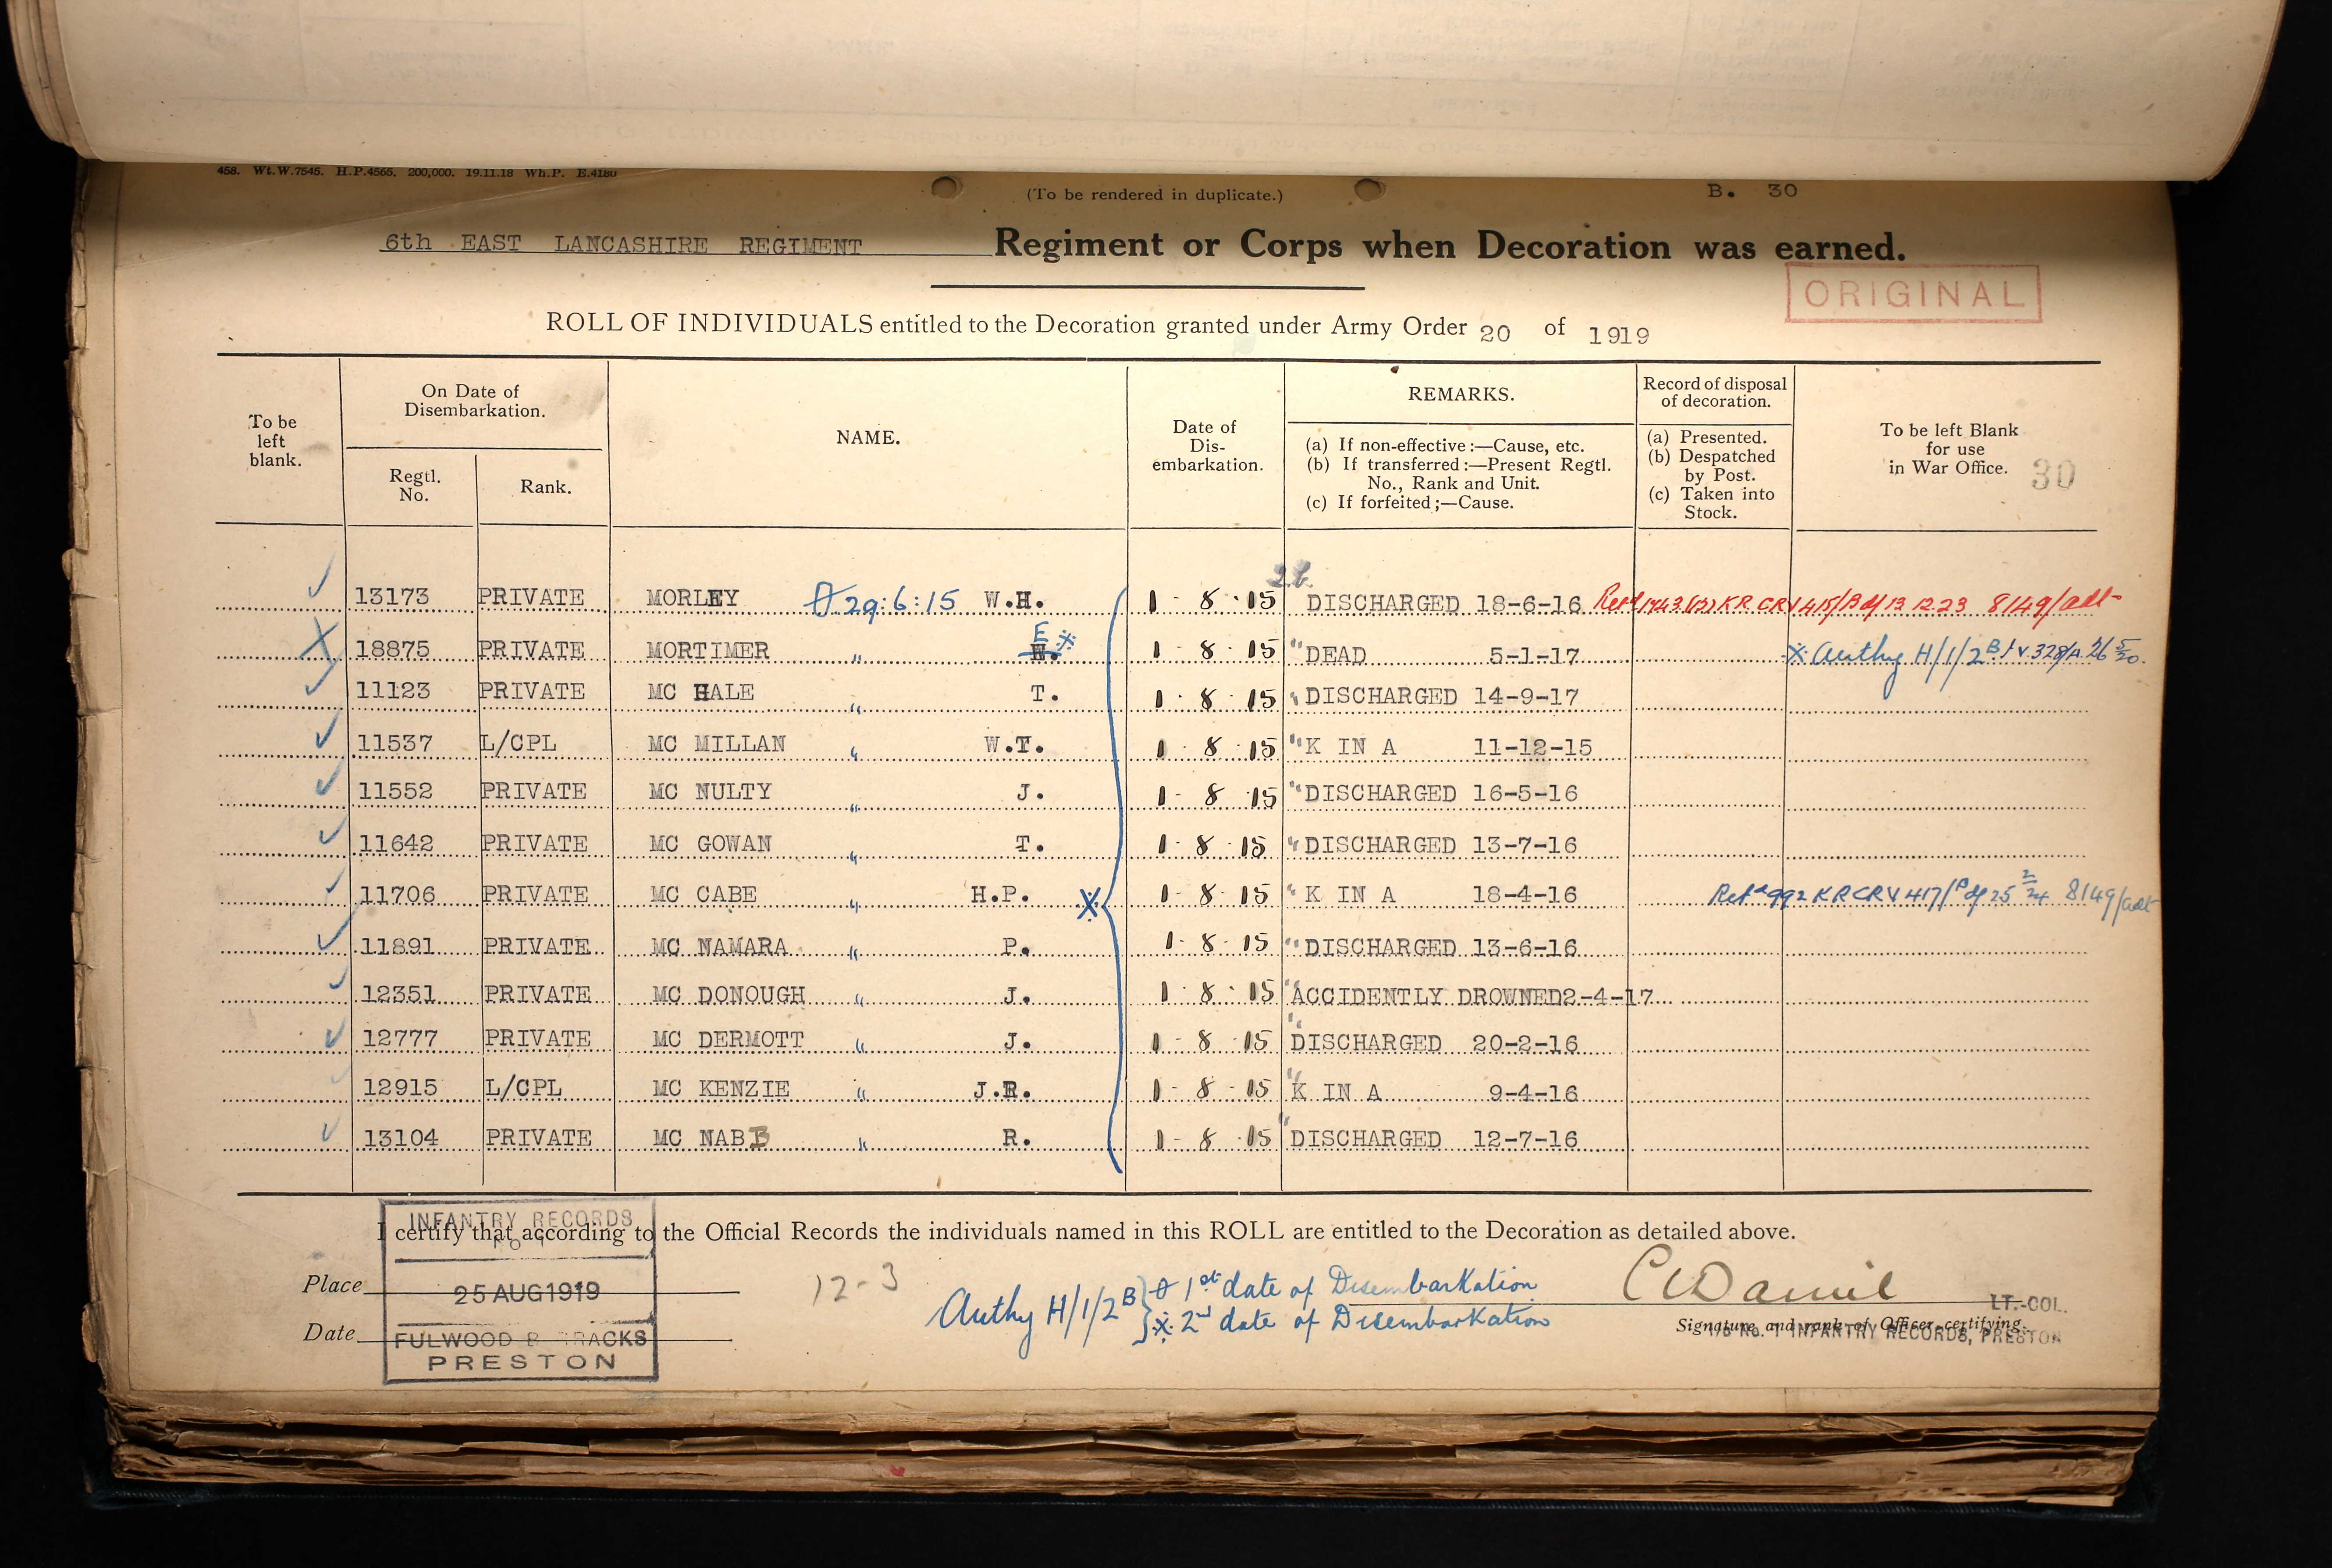 458. Wt.W.7545. H.P.4565. 200,000. 19.11.18 Wh.P. E.4180
(To be rendered in duplicate.)
B. 30
6th EAST LANCASHIRE REGIMENT Regiment or Corps when Decoration was earned.
ORIGINAL
ROLL OF INDIVIDUALS entitled to the Decoration granted under Army Order 20 of 1919
To be left blank.
On Date of Disembarkation.
Regtl. No.
Rank.
NAME.
Date of Dis-embarkation.
REMARKS.
(a) If non-effective:—Cause, etc.
(b) If transferred:—Present Regtl.
No., Rank and Unit.
(c) If forfeited;—Cause.
Record of disposal of decoration.
(a) Presented.
(b) Despatched
by Post.
(c) Taken into
Stock.
To be left Blank
for use
in War Office.
30
2b
13173 PRIVATE MORLEY 29:6:15 W.H. 1 - 8 - 15 DISCHARGED 18-6-16 8149/adt
18875 PRIVATE MORTIMER " W. E ※ 1 - 8 - 15 " DEAD 5-1-17 ※ Authy H/1/2B
11123 PRIVATE MC HALE " T. 1 - 8 - 15 " DISCHARGED 14-9-17
11537 L/CPL MC MILLAN " W.T. 1 - 8 - 15 " K IN A 11-12-15
11552 PRIVATE MC NULTY " J. 1 - 8 - 15 " DISCHARGED 16-5-16
11642 PRIVATE MC GOWAN " T. 1 - 8 - 15 " DISCHARGED 13-7-16
11706 PRIVATE MC CABE " H.P. ※ 1 - 8 - 15 " K IN A 18-4-16 8149/adt
11891 PRIVATE MC NAMARA " P. 1 - 8 - 15 " DISCHARGED 13-6-16
12351 PRIVATE MC DONOUGH " J. 1 - 8 - 15 " ACCIDENTLY DROWNED 2-4-17
12777 PRIVATE MC DERMOTT " J. 1 - 8 - 15 " DISCHARGED 20-2-16
12915 L/CPL MC KENZIE " J.R. 1 - 8 - 15 " K IN A 9-4-16
13104 PRIVATE MC NABB " R. 1 - 8 - 15 " DISCHARGED 12-7-16
I certify that according to the Official Records the individuals named in this ROLL are entitled to the Decoration as detailed above.
INFANTRY RECORDS
No 1
25 AUG 1919
FULWOOD BARRACKS
PRESTON
Place
Date
12-3
Authy H/1/2B
1st date of Disembarkation
※ 2nd date of Disembarkation
LT.-COL.
Signature and rank of Officer certifying.
I/c No. 1 INFANTRY RECORDS, PRESTON